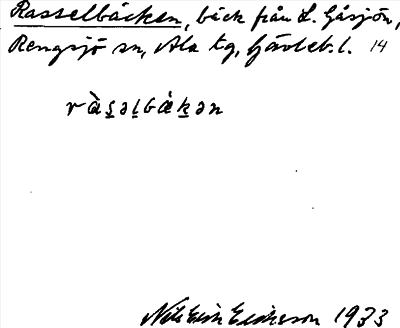 Rasselbäcken, bäck från L. Gåsjön,
Rengsjö sn, Ala tg, Gävleb. l. 14
ràs̲əl̲bäk̲ən
Nils Erik Eriksson 1933